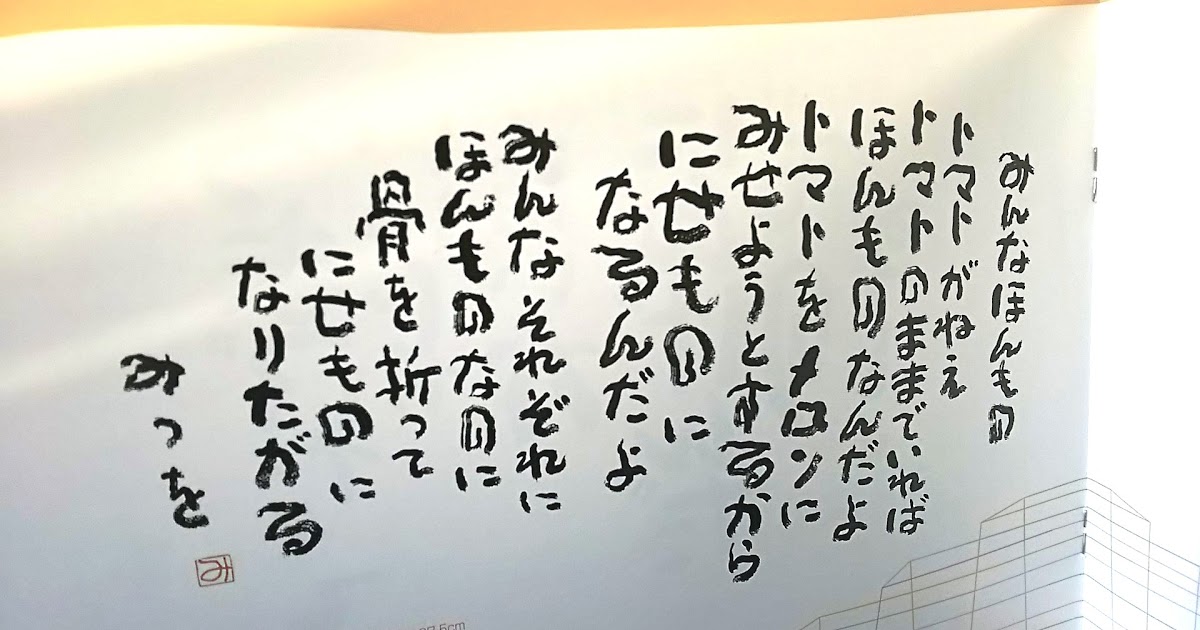 みんなほんもの
トマトがねえ
トマトのままでいれば
ほんものなんだよ
トマトをメロンに
みせようとするから
にせものに
なるんだよ
みんなそれぞれに
ほんものなのに
骨を折って
にせものに
なりたがる
みつを
み
7.5cm